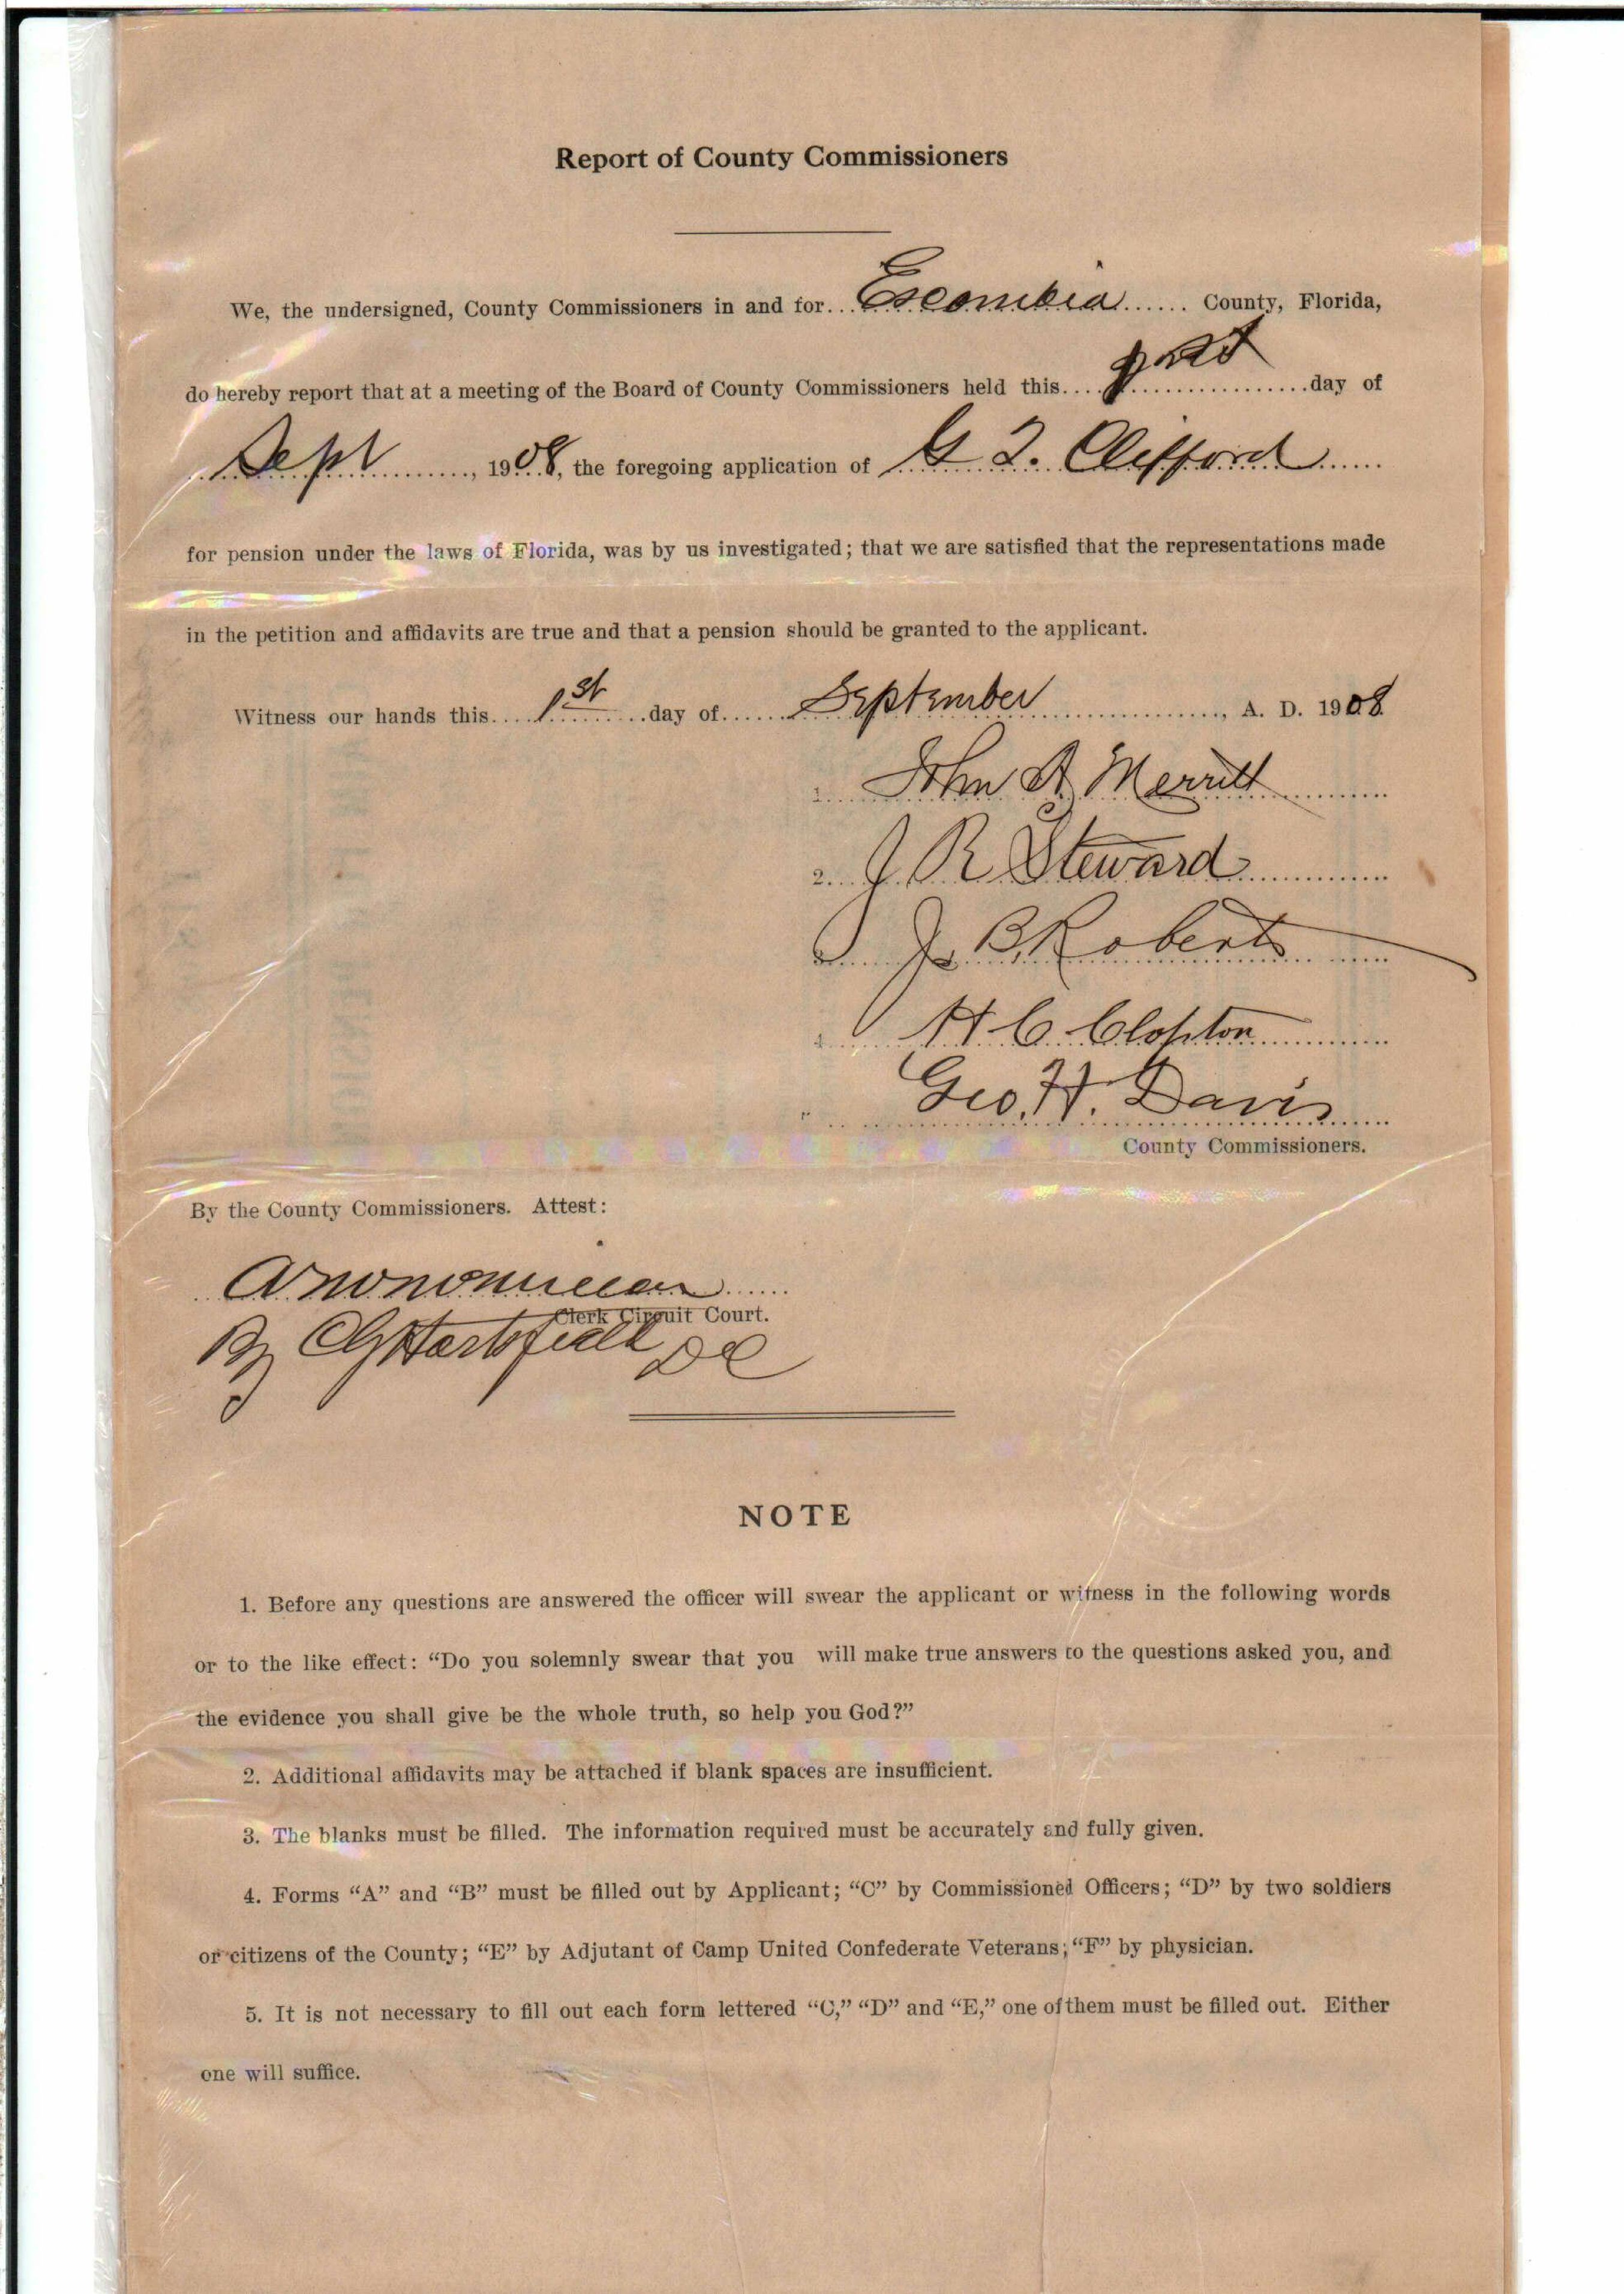 Report of County Commissioners
We, the undersigned, County Commissioners in and for... Escambia ...... County, Florida,
do hereby report that at a meeting of the Board of County Commissioners held this.... first ................day of
Sept ........, 1908, the foregoing application of G T. Clifford ......
for pension under the laws of Florida, was by us investigated; that we are satisfied that the representations made
in the petition and affidavits are true and that a pension should be granted to the applicant.
Witness our hands this.... 1st ....day of...... September ......................, A. D. 1908
1.... John A Merritt ............
2.... J. R. Steward ............
3.... J. B. Roberts ............
4.... H C Clopton ............
Geo. H. Davis ......
County Commissioners.
By the County Commissioners. Attest:
Clerk Circuit Court.
By DC
NOTE
1. Before any questions are answered the officer will swear the applicant or witness in the following words
or to the like effect: “Do you solemnly swear that you will make true answers to the questions asked you, and
the evidence you shall give be the whole truth, so help you God?”
2. Additional affidavits may be attached if blank spaces are insufficient.
3. The blanks must be filled. The information required must be accurately and fully given.
4. Forms “A” and “B” must be filled out by Applicant; “C” by Commissioned Officers; “D” by two soldiers
or citizens of the County; “E” by Adjutant of Camp United Confederate Veterans; “F” by physician.
5. It is not necessary to fill out each form lettered “C,” “D” and “E,” one of them must be filled out. Either
one will suffice.